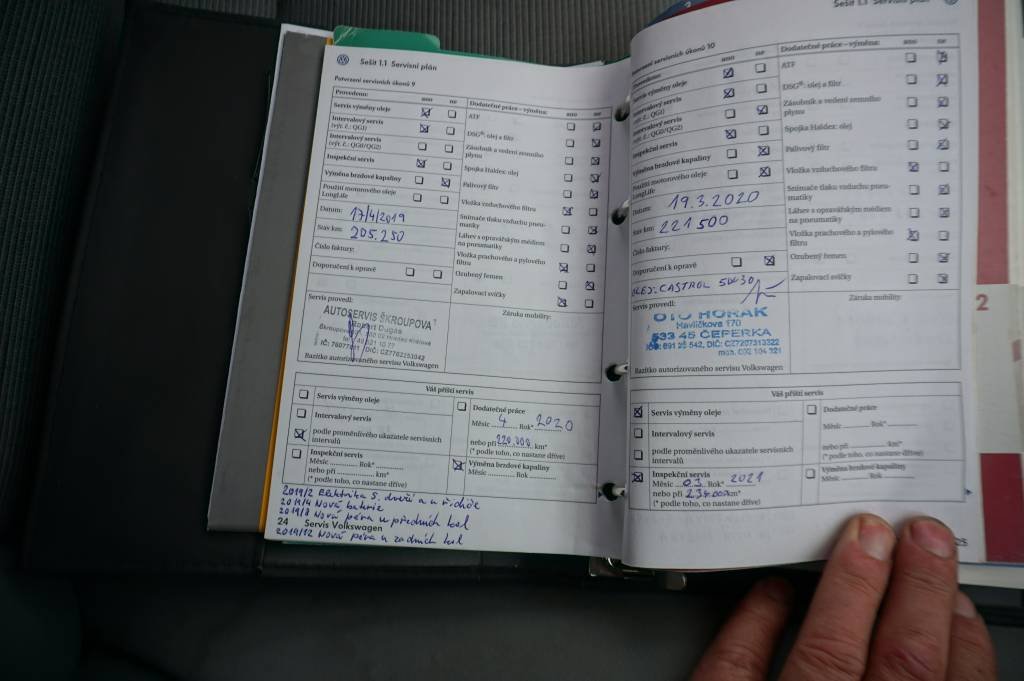 Sešit 1.1 Servisní plán
Potvrzení servisních úkonů 9
Provedeno: ano ne
Servis výměny oleje
Intervalový servis
(výr. č.: QG1)
Intervalový servis
(výr. č.: QG0/QG2)
Inspekční servis
Výměna brzdové kapaliny
Použití motorového oleje
LongLife
Datum: 17/4/2019
Stav km: 205.250
Číslo faktury:
Doporučení k opravě
Dodatečné práce – výměna: ano ne
ATF
DSG®: olej a filtr
Zásobník a vedení zemního
plynu
Spojka Haldex: olej
Palivový filtr
Vložka vzduchového filtru
Snímače tlaku vzduchu pneumatiky
Láhev s opravářským médiem
na pneumatiky
Vložka prachového a pylového
filtru
Ozubený řemen
Zapalovací svíčky
Servis provedl:
AUTOSERVIS ŠKROUPOVA
Robert Dugas
Razítko autorizovaného servisu Volkswagen
Záruka mobility:
Váš příští servis
Servis výměny oleje
Intervalový servis
podle proměnlivého ukazatele servisních
intervalů
Inspekční servis
Měsíc ............ Rok* ............
nebo při ............ km*
(* podle toho, co nastane dříve)
Dodatečné práce
Měsíc 4 Rok* 2020
nebo při 220.000 km*
(* podle toho, co nastane dříve)
Výměna brzdové kapaliny
Měsíc ............ Rok ............
2019/4 Nová baterie
2019/8 Nová péra u předních kol
24 Servis Volkswagen
2019/12 Nová péra u zadních kol
Sešit 1.1 Servisní plán
Potvrzení servisních úkonů 10
Provedeno: ano ne
Servis výměny oleje
Intervalový servis
(výr. č.: QG1)
Intervalový servis
(výr. č.: QG0/QG2)
Inspekční servis
Výměna brzdové kapaliny
Použití motorového oleje
LongLife
Datum: 19.3.2020
Stav km: 221500
Číslo faktury:
Doporučení k opravě
OLEJ: CASTROL 5W30
Dodatečné práce – výměna: ano ne
ATF
DSG®: olej a filtr
Zásobník a vedení zemního
plynu
Spojka Haldex: olej
Palivový filtr
Vložka vzduchového filtru
Snímače tlaku vzduchu pneumatiky
Láhev s opravářským médiem
na pneumatiky
Vložka prachového a pylového
filtru
Ozubený řemen
Zapalovací svíčky
Servis provedl:
OTO HORÁK
Havlíčkova 170
533 45 ČEPERKA
Razítko autorizovaného servisu Volkswagen
Záruka mobility:
Váš příští servis
Servis výměny oleje
Intervalový servis
podle proměnlivého ukazatele servisních
intervalů
Inspekční servis
Měsíc 03 Rok* 2021
nebo při 234.000 km*
(* podle toho, co nastane dříve)
Dodatečné práce
Měsíc ............ Rok* ............
nebo při ............ km*
(* podle toho, co nastane dříve)
Výměna brzdové kapaliny
Měsíc ............ Rok ............
25
2